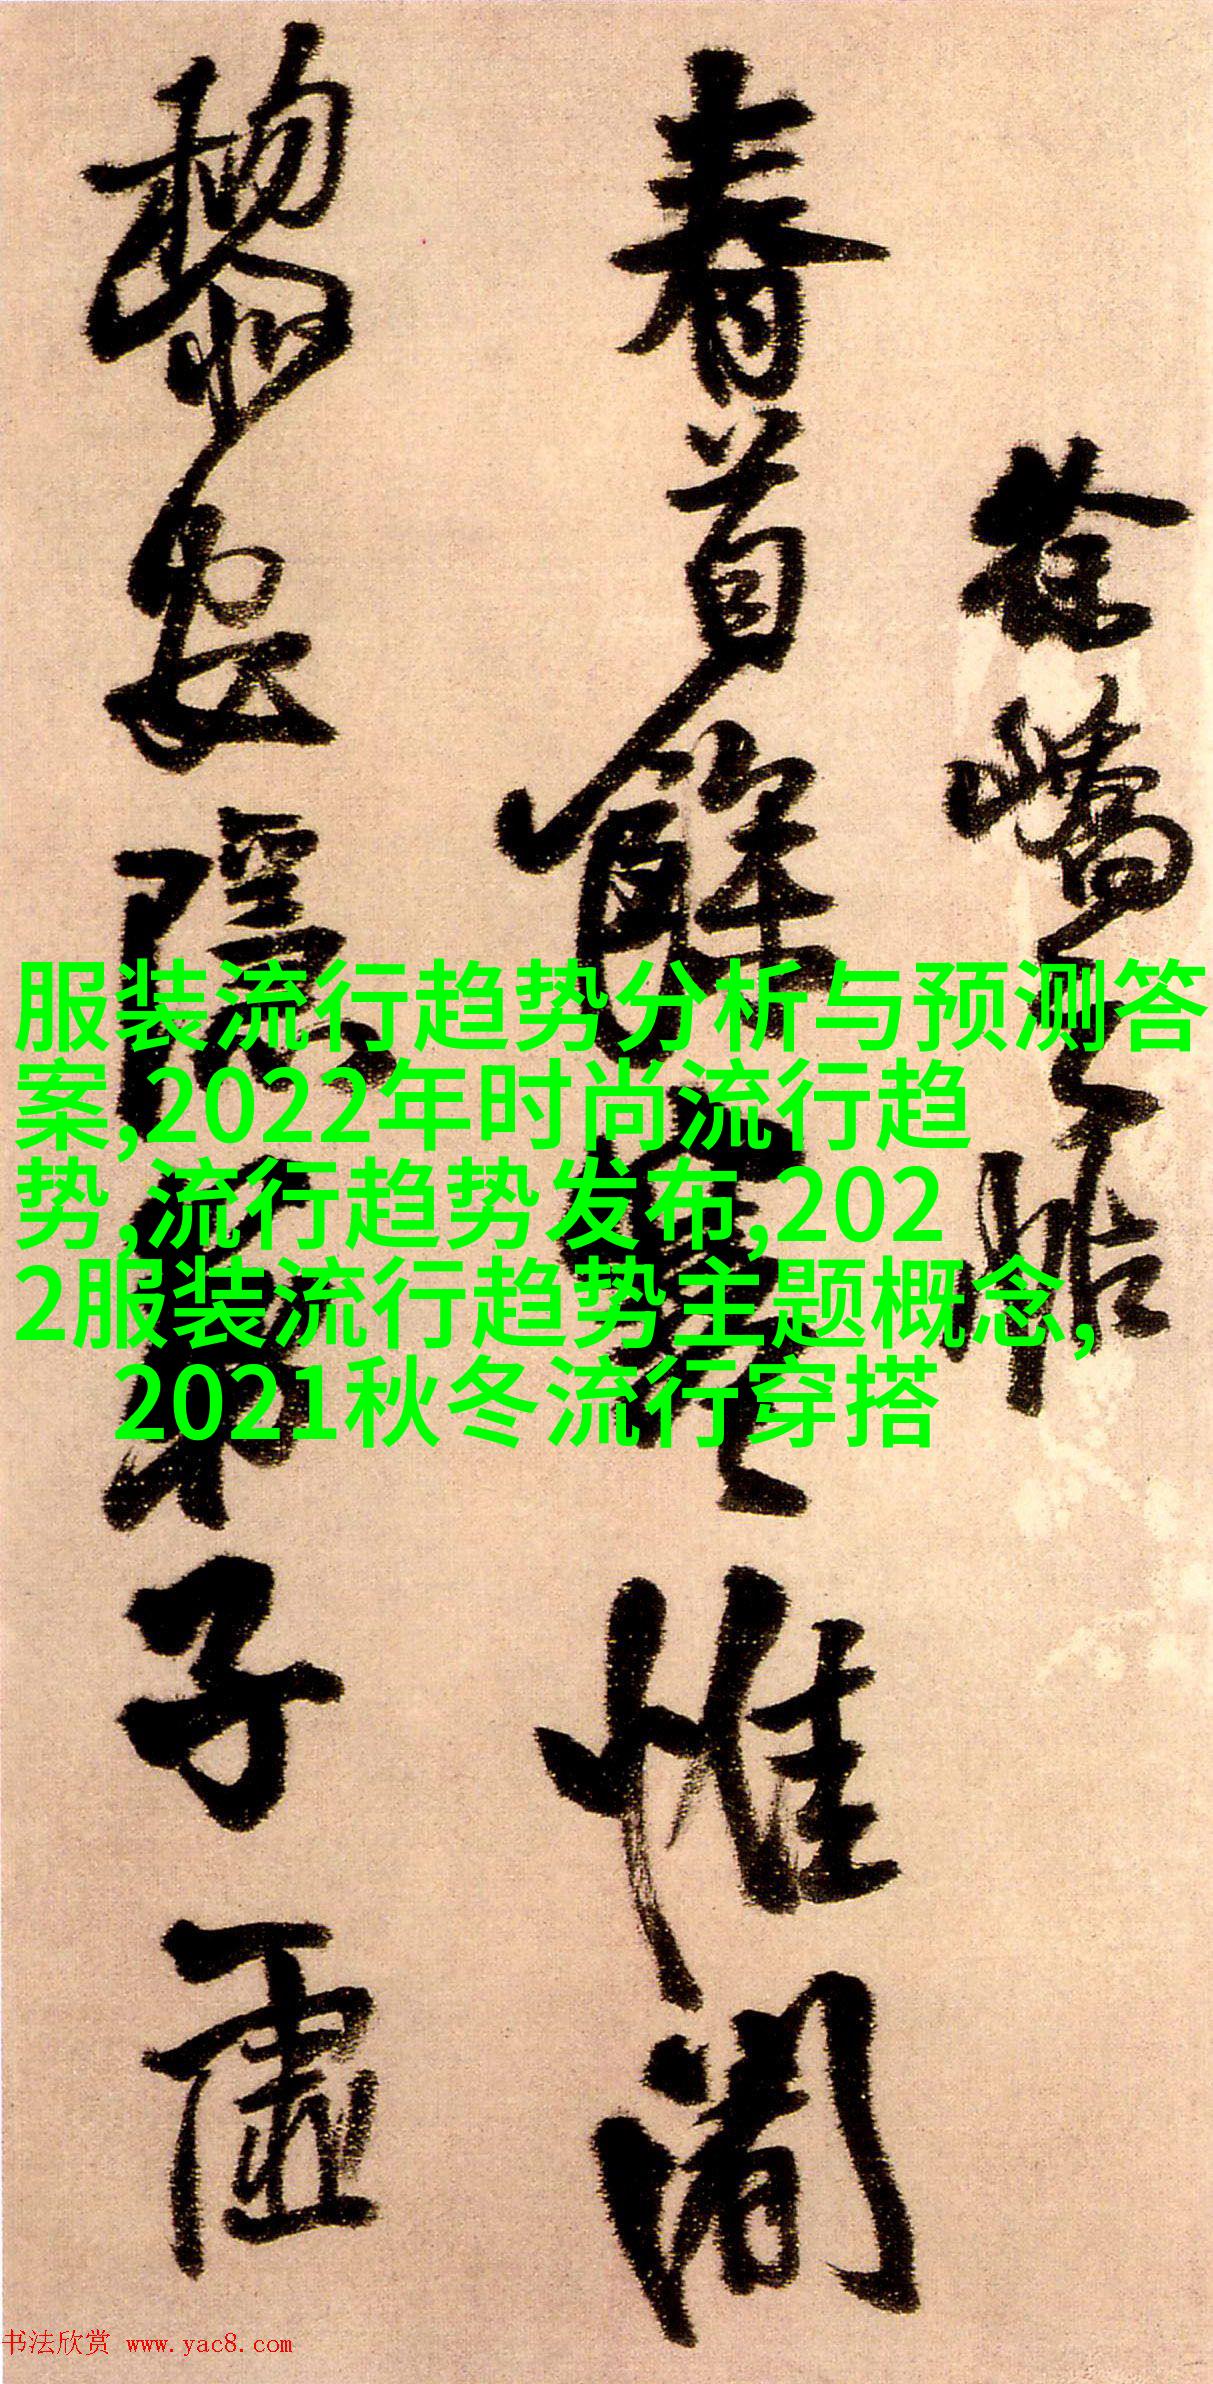 徐嶠之帖
春首餘寒惟闍
黎安隱弟子虛
服装流行趋势分析与预测答
案,2022年时尚流行趋
势,流行趋势发布,202
2服装流行趋势主题概念,
2021秋冬流行穿搭
书法欣赏 www.yac8.com